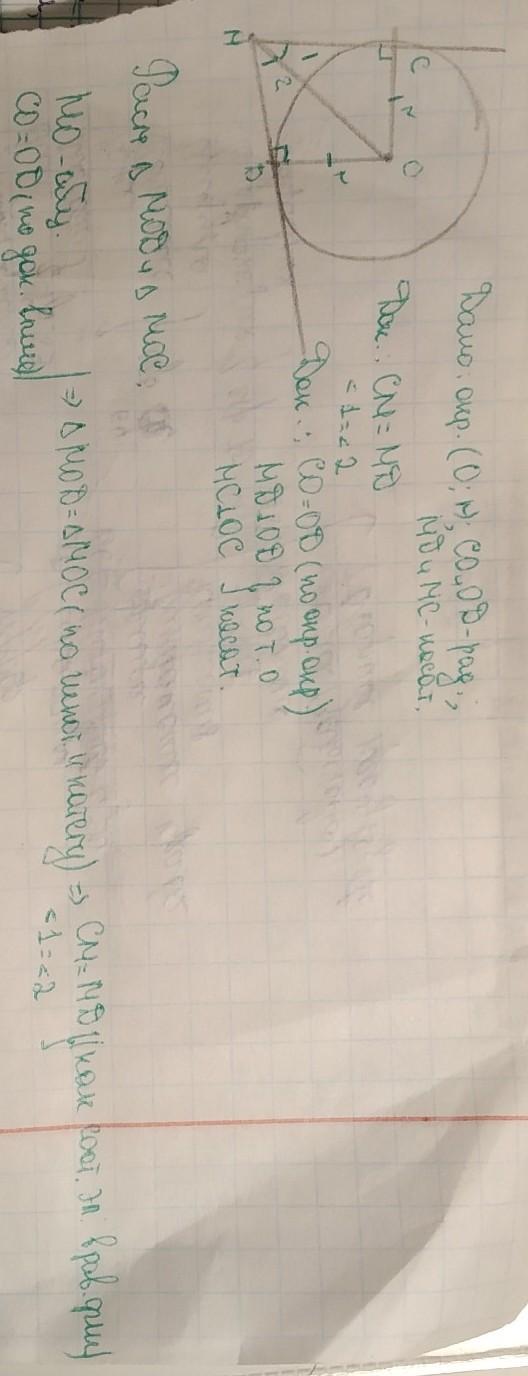 Дано: окр. (O; r); CO и OD - рад.;
MD и MC - касат.
Док.: CM = MD
<1 = <2
Док.: CO = OD (по окр. окр)
MD⊥OD } по т. о
MC⊥OC } касат.
M
1
2
C
r
O
r
D
Расм △ MOD и △ MOC;
MO - общ.
CO = OD (по док. выше) | => △MOD = △MOC (по гипот. и катету) => CM = MD } (как соот. эл. в рав. фиг)
<1 = <2